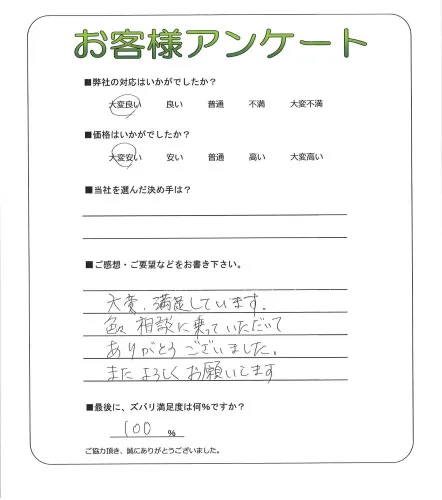 お客様アンケート
■弊社の対応はいかがでしたか？
大変良い　良い　普通　不満　大変不満
■価格はいかがでしたか？
大変安い　安い　普通　高い　大変高い
■当社を選んだ決め手は？
■ご感想・ご要望などをお書き下さい。
大変、満足しています.
色々 相談に乗っていただいて
ありがとうございました。
また よろしく お願いします
■最後に、ズバリ満足度は何％ですか？
100 ％
ご協力頂き、誠にありがとうございました。